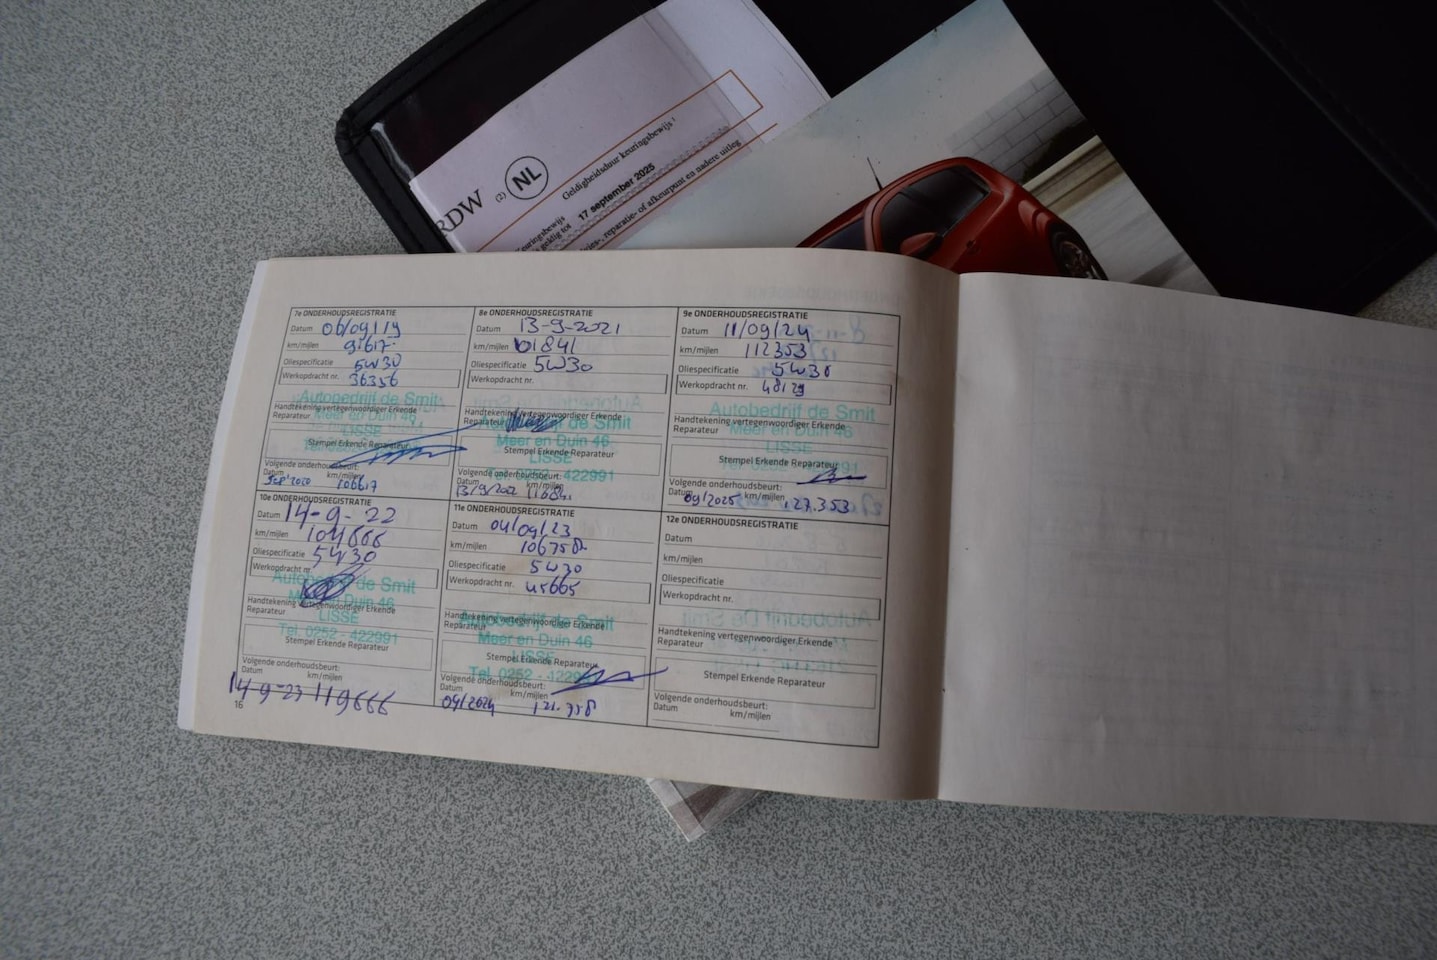 RDW (2) NL
Geldigheidsduur keuringsbewijs 1
Keuringsbewijs
geldig tot 17 september 2025
reparatie- of afkeurpunt en nadere uitleg
7e ONDERHOUDSREGISTRATIE
Datum 06/09/19
km/mijlen 91617
Oliespecificatie 5W30
Werkopdracht nr. 36356
Autobedrijf de Smit
Handtekening vertegenwoordiger Erkende
Reparateur
Meer en Duin 46
LISSE
Stempel Erkende Reparateur
Volgende onderhoudsbeurt:
Datum km/mijlen
Sep' 2020 106617
8e ONDERHOUDSREGISTRATIE
Datum 13-9-2021
km/mijlen 101841
Oliespecificatie 5W30
Werkopdracht nr.
Handtekening vertegenwoordiger Erkende
Reparateur
de Smit
Meer en Duin 46
Stempel Erkende Reparateur
LISSE
Tel. 0252 - 422991
Volgende onderhoudsbeurt:
Datum km/mijlen
9e ONDERHOUDSREGISTRATIE
Datum 11/09/24
km/mijlen 112353
Oliespecificatie 5W30
Werkopdracht nr. 48129
Autobedrijf de Smit
Handtekening vertegenwoordiger Erkende
Reparateur
Meer en Duin 46
LISSE
Stempel Erkende Reparateur
Volgende onderhoudsbeurt:
Datum km/mijlen
09/2025 127.353
10e ONDERHOUDSREGISTRATIE
Datum 14-9-22
km/mijlen 104666
Oliespecificatie 5W30
Werkopdracht nr.
Autobedrijf de Smit
Meer en Duin 46
Handtekening vertegenwoordiger Erkende
Reparateur
LISSE
Tel. 0252 - 422991
Stempel Erkende Reparateur
Volgende onderhoudsbeurt:
Datum km/mijlen
14-9-23 119666
11e ONDERHOUDSREGISTRATIE
Datum 04/09/23
km/mijlen 106758
Oliespecificatie 5W30
Werkopdracht nr. 45665
Autobedrijf de Smit
Handtekening vertegenwoordiger Erkende
Reparateur
Meer en Duin 46
LISSE
Stempel Erkende Reparateur
Tel. 0252 - 422991
Volgende onderhoudsbeurt:
Datum km/mijlen
09/2024 121.758
12e ONDERHOUDSREGISTRATIE
Datum
km/mijlen
Oliespecificatie
Werkopdracht nr.
Handtekening vertegenwoordiger Erkende
Reparateur
Stempel Erkende Reparateur
Volgende onderhoudsbeurt:
Datum km/mijlen
16